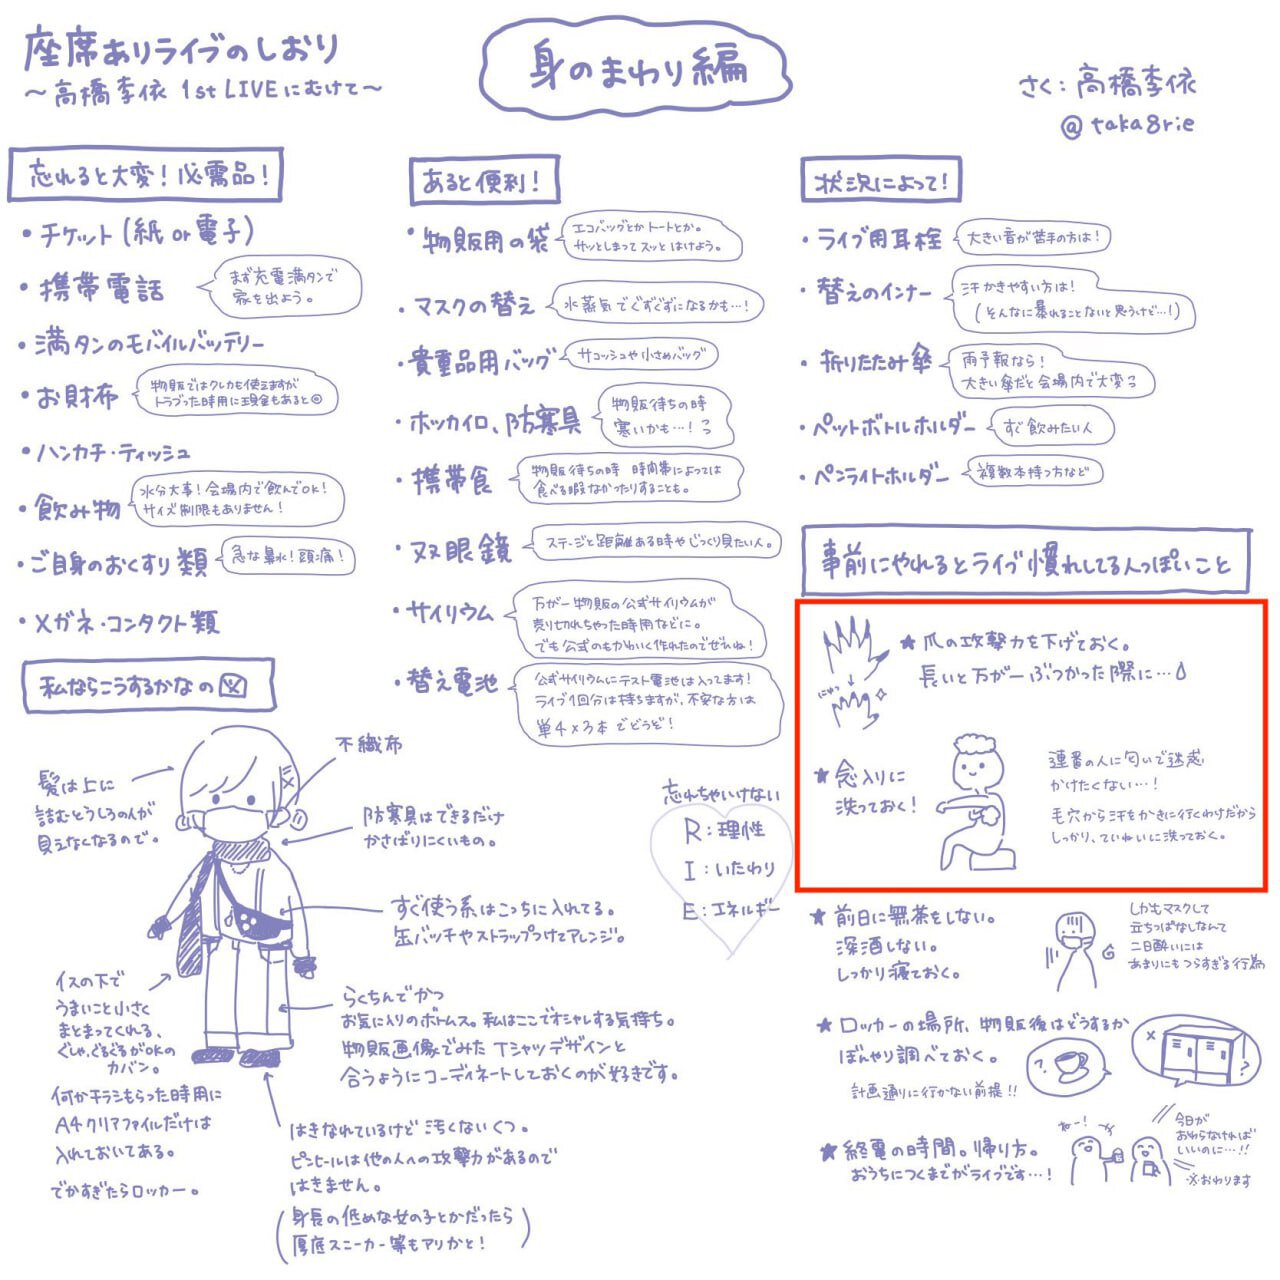 座席ありライブのしおり
～高橋李依 1st LIVEにむけて～
身のまわり編
さく：高橋李依
@taka8rie
忘れると大変！必需品！
・チケット(紙or電子)
・携帯電話
まず充電満タンで
家を出よう。
・満タンのモバイルバッテリー
・お財布
物販ではクレカも使えますが
トラブった時用に現金もあると◎
・ハンカチ・ティッシュ
・飲み物
水分大事！会場内で飲んでOK！
サイズ制限もありません！
・ご自身のおくすり類
急な鼻水！頭痛！
・メガネ・コンタクト類
あると便利！
・物販用の袋
エコバッグとかトートとか。
サッとしまってスッとはけよう。
・マスクの替え
水蒸気でぐずぐずになるかも…！
・貴重品用バッグ
サコッシュや小さめバッグ
・ホッカイロ、防寒具
物販待ちの時
寒いかも…！
・携帯食
物販待ちの時 時間帯によっては
食べる暇なかったりすることも。
・双眼鏡
ステージと距離ある時やじっくり見たい人。
・サイリウム
万が一物販の公式サイリウムが
売り切れちゃった時用などに。
でも公式のもかわいく作れたのでぜひね！
・替え電池
公式サイリウムにテスト電池は入ってます！
ライブ1回分は持ちますが、不安な方は
単4×3本でどうぞ！
状況によって！
・ライブ用耳栓
大きい音が苦手の方は！
・替えのインナー
汗かきやすい方は！
(そんなに暴れることないと思うけど…！)
・折りたたみ傘
雨予報なら！
大きい傘だと会場内で大変っ
・ペットボトルホルダー
すぐ飲みたい人
・ペンライトホルダー
複数本持つ方など
事前にやれるとライブ慣れしてる人っぽいこと
★爪の攻撃力を下げておく。
長いと万が一ぶつかった際に…
★念入りに
洗っておく！
連番の人に匂いで迷惑
かけたくない…！
毛穴から汗をかきに行くわけだから
しっかり、ていねいに洗っておく。
★前日に無茶をしない。
深酒しない。
しっかり寝ておく。
しかもマスクして
立ちっぱなしなんて
二日酔いには
あまりにもつらすぎる行為
★ロッカーの場所、物販後はどうするか
ぼんやり調べておく。
計画通りに行かない前提！！
?
×
?
★終電の時間。帰り方。
おうちにつくまでがライブです…！
ねー！
今日が
おわらなければ
いいのに…！！
※おわります
私ならこうするかなの図
髪は上に
詰むとうしろの人が
見えなくなるので。
不織布
防寒具はできるだけ
かさばりにくいもの。
すぐ使う系はこっちに入れてる。
缶バッチやストラップつけてアレンジ。
イスの下で
うまいこと小さく
まとまってくれる、
ぐしゃ、ぐるぐるがOKの
カバン。
何かチラシもらった時用に
A4クリアファイルだけは
入れておいてある。
でかすぎたらロッカー。
らくちんでかつ
お気に入りのボトムス。私はここでオシャレする気持ち。
物販画像でみたTシャツデザインと
合うようにコーディネートしておくのが好きです。
はきなれているけど汚くないくつ。
ピンヒールは他の人への攻撃力があるので
はきません。
(身長の低めな女の子とかだったら
厚底スニーカー等もアリかと！)
忘れちゃいけない
R：理性
I：いたわり
E：エネルギー